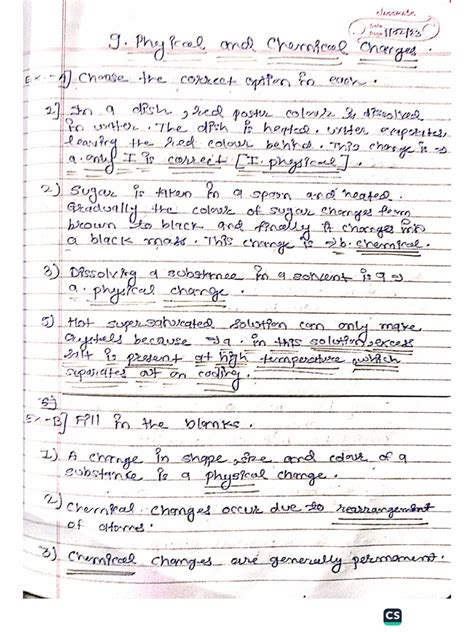 classmate
Date
Page
9. Physical and Chemical Changes.
Ex-A) Choose the correct option in each.
1.] In a dish, red poster colour is dissolved
in water. The dish is heated. water evaporates
leaving the red colour behind. This change is ⇒
a. only I is correct [I. physical].
2.) Sugar is taken in a spoon and heated.
Gradually the colour of sugar changes from
brown to black and finally it changes into
a black mass. This change is ⇒ b. chemical.
3) Dissolving a substance in a solvent is a ⇒
a. physical change.
5) Hot supersaturated solution can only make
crystals because ⇒ a. in this solution excess
salt is present at high temperature, which
separates out on cooling.
5)
Ex-B] Fill in the blanks.
1) A change in shape, size and colour of a
substance is a physical change.
2) Chemical changes occur due to rearrangement
of atoms.
3) Chemical changes are generally permanent.
CS